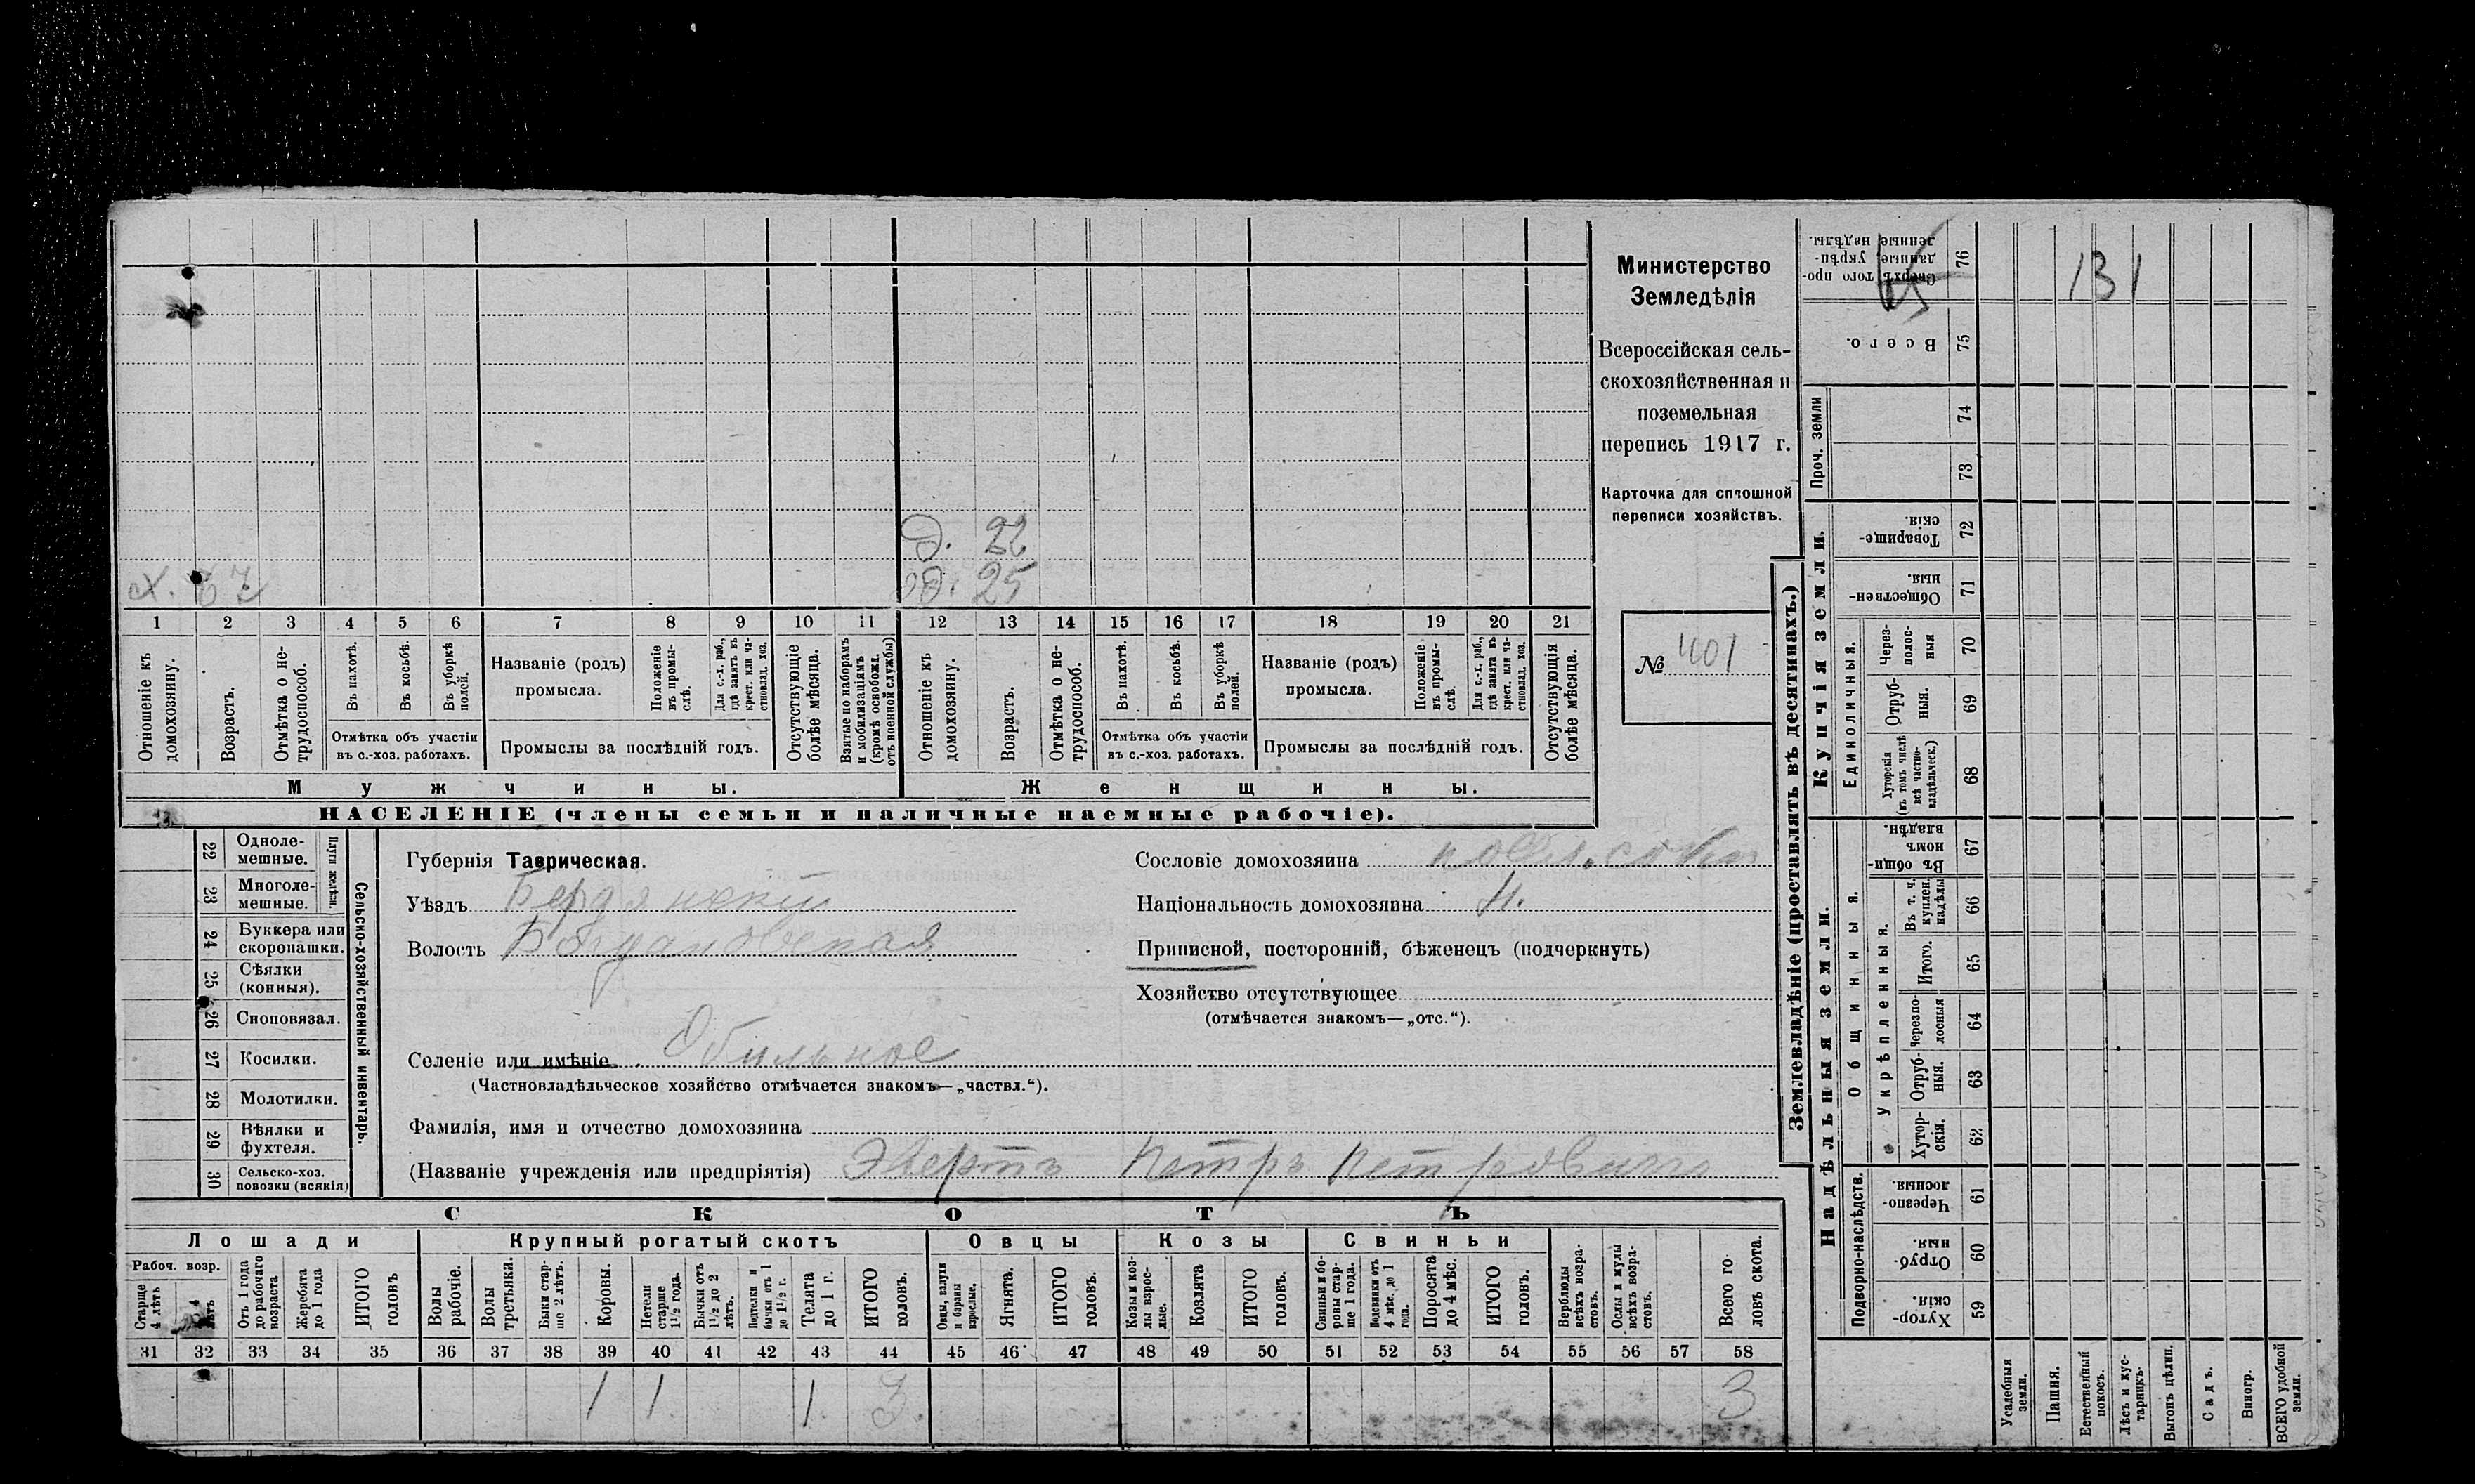 Министерство
Земледѣлія
Всероссійская сель-
скохозяйственная и
поземельная
перепись 1917 г.
Карточка для сплошной
переписи хозяйствъ.
№ 401
д. 22
25
х.
1 2 3 4 5 6 7 8 9 10 11 12 13 14 15 16 17 18 19 20 21
Отношеніе къ домохозяину.
Возрастъ.
Отмѣтка о не-трудоспособ.
Въ пахотѣ.
Въ косьбѣ.
Въ уборкѣ полей.
Отмѣтка объ участіи
въ с.-хоз. работахъ.
Названіе (родъ)
промысла.
Положеніе въ промы-слѣ.
Для с.-х. раб., гдѣ занятъ въ крест. или ча-стновлад. хоз.
Промыслы за послѣдній годъ.
Отсутствующіе болѣе мѣсяца.
Взятые по наборамъ и мобилизаціямъ (кромѣ освобожд. отъ военной службы)
Отношеніе къ домохозяину.
Возрастъ.
Отмѣтка о не-трудоспособ.
Въ пахотѣ.
Въ косьбѣ.
Въ уборкѣ полей.
Отмѣтка объ участіи
въ с.-хоз. работахъ.
Названіе (родъ)
промысла.
Положеніе въ промы-слѣ.
Для с.-х. раб., гдѣ занята въ крест. или ча-стновлад. хоз.
Промыслы за послѣдній годъ.
Отсутствующія болѣе мѣсяца.
Мужчины.
Женщины.
НАСЕЛЕНІЕ (члены семьи и наличные наемные рабочіе).
22 Одноле-мешные.
23 Многоле-мешные.
Плуги желѣзн.
24 Буккера или скоропашки.
25 Сѣялки (конныя).
26 Сноповязал.
27 Косилки.
28 Молотилки.
29 Вѣялки и фухтеля.
30 Сельско-хоз. повозки (всякія)
Сельско-хозяйственный инвентарь.
Губернія Таврическая.
Уѣздъ Бердянскій
Волость Богдановская
Селеніе или имѣніе Обильное
(Частновладѣльческое хозяйство отмѣчается знакомъ—„частвл.“).
Фамилія, имя и отчество домохозяина
(Названіе учрежденія или предпріятія) Эвертъ Петръ Петровичъ
Сословіе домохозяина
Національность домохозяина Н.
Приписной, посторонній, бѣженецъ (подчеркнуть)
Хозяйство отсутствующее
(отмѣчается знакомъ—„отс.“).
СКОТЪ
Лошади
Крупный рогатый скотъ
Овцы
Козы
Свиньи
Рабоч. возр.
Старше 4 лѣтъ
лѣтъ
Отъ 1 года до рабочаго возраста
Жеребята до 1 года
ИТОГО головъ
Волы рабочіе.
Волы третьяки.
Быки стар-ше 2 лѣтъ.
Коровы.
Нетели старше 1½ года.
Бычки отъ 1½ до 2 лѣтъ.
Подтелки и бычки отъ 1 до 1½ г.
Телята до 1 г.
ИТОГО головъ.
Овцы, валухи и бараны взрослые.
Ягнята.
ИТОГО головъ.
Козы и коз-лы взрос-лые.
Козлята
ИТОГО головъ.
Свиньи и бо-ровы стар-ше 1 года.
Подсвинки отъ 4 мѣс. до 1 года.
Поросята до 4 мѣс.
ИТОГО головъ.
Верблюды всѣхъ возра-стовъ.
Ослы и мулы всѣхъ возра-стовъ.
Всего го-ловъ скота.
31 32 33 34 35 36 37 38 39 40 41 42 43 44 45 46 47 48 49 50 51 52 53 54 55 56 57 58
1 1 1 3 3
Землевладѣніе (проставлять въ десятинахъ.)
Купчія земли.
Надѣльныя земли.
Проч. земли
Единоличныя.
Общинныя.
Укрѣпленныя.
Подворно-наслѣдств.
Сверхъ того про-данные укрѣп-ленные надѣлы. 76
131
Всего. 75
74
73
Товарище-скія. 72
Обществен-ныя. 71
Через-полос-ныя 70
Отруб-ныя. 69
Хуторскія (въ томъ числѣ всѣ частно-владѣльческ.) 68
Въ общин-номъ владѣн. 67
Въ т. ч. куплен. надѣлы 66
Итого. 65
Черезпо-лосныя 64
Отруб-ныя. 63
Хутор-скія. 62
Черезпо-лосныя. 61
Отруб-ныя. 60
Хутор-скія. 59
Усадебныя земли.
Пашня.
Естественный покосъ.
Лѣсъ и кус-тарникъ.
Выгонъ цѣлин.
Садъ.
Виногр.
ВСЕГО удобной земли.